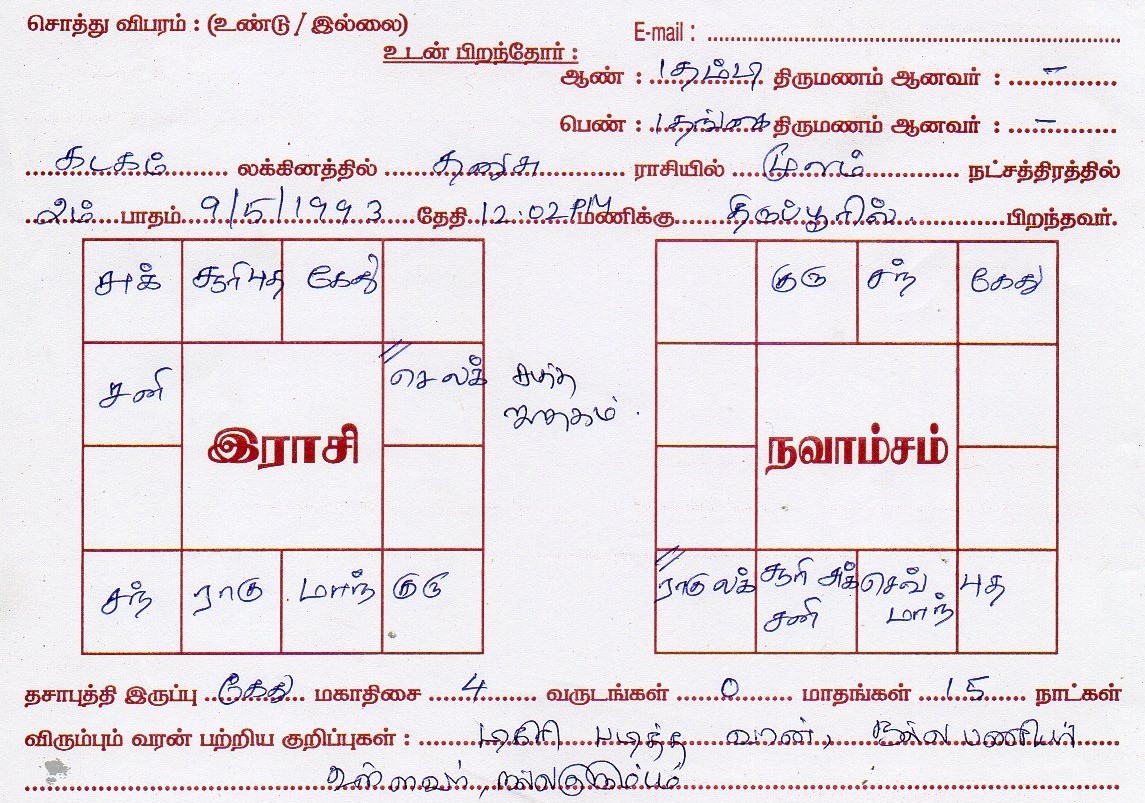 சொத்து விபரம் : (உண்டு / இல்லை)
E-mail : ................
உடன் பிறந்தோர் :
ஆண் : 1 தம்பி திருமணம் ஆனவர் : –
பெண் : 1 தங்கை திருமணம் ஆனவர் : –
கடகம் லக்கினத்தில் தனுசு ராசியில் மூலம் நட்சத்திரத்தில்
2ம் பாதம் 9/5/1993 தேதி 12:02 PM மணிக்கு திருப்பூரில். பிறந்தவர்.
சுக் சூரி புத கேது
சனி
செ லக்
சுத்த
ஜாதகம்.
இராசி
சந் ராகு மாந் குரு
குரு சந் கேது
நவாம்சம்
ராகு லக் சூரி சுக் சனி செவ் மாந் புத
தசாபுத்தி இருப்பு கேது மகாதிசை 4 வருடங்கள் 0 மாதங்கள் 15 நாட்கள்
விரும்பும் வரன் பற்றிய குறிப்புகள் : டிகிரி படித்த வரன், நல்ல பணியில்
உள்ளவர், நல்லகுடும்பம்